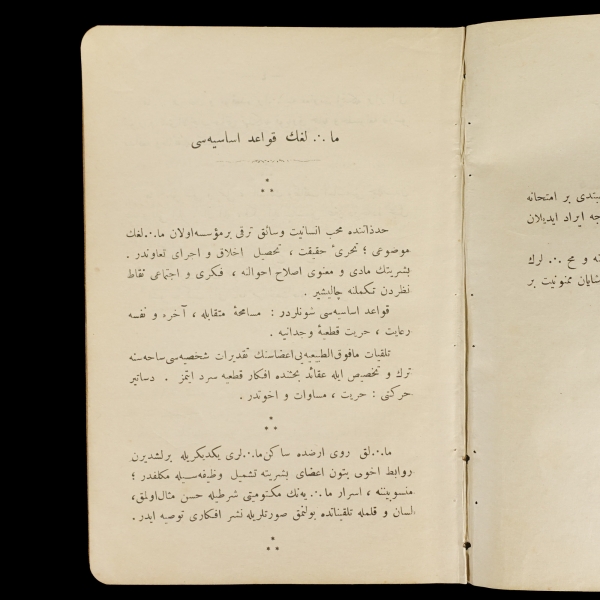 ما ∴ لغك قواعد اساسیه‌سی
حد ذاتنده محب انسانیت و سائق ترقی بر مؤسسه اولان ما ∴ لغك
موضوعی ؛ تحرئ حقیقت ، تحصیل اخلاق و اجرای تعاوندر .
بشریتك مادی و معنوی اصلاح احوالنه ، فكری و اجتماعی نقاط
نظردن تكملنه چالیشیر .
قواعد اساسیه‌سی شونلردر : مسامحۀ متقابله ، آخره و نفسه
رعایت ، حریت قطعیۀ وجدانیه .
تلقیات مافوق‌الطبیعیه‌یی اعضاسنك تقدیرات شخصیه‌سی ساحه‌سنه
ترك و تخصیص ایله عقائد بحثنده افكار قطعیه سرد ایتمز . دساتیر
حركتی : حریت ، مساوات و اخوتدر .
ما ∴ لق روی ارضده ساكن ما ∴ لری یكدیكریله برلشدیرن
روابط اخوتی بتون اعضای بشریته تشمیل وظیفه‌سیله مكلفدر ؛
منسوبیننه ، اسرار ما ∴ یه‌نك مكتومیتی شرطیله حسن مثال اولمق ،
لسان و قلمله تلقیناتده بولنمق صورتلریله نشر افكاری توصیه ایدر .
بر امتحانه
جه ایراد ایدیلان
نه و مح ∴ لرك
شایان ممنونیت بر